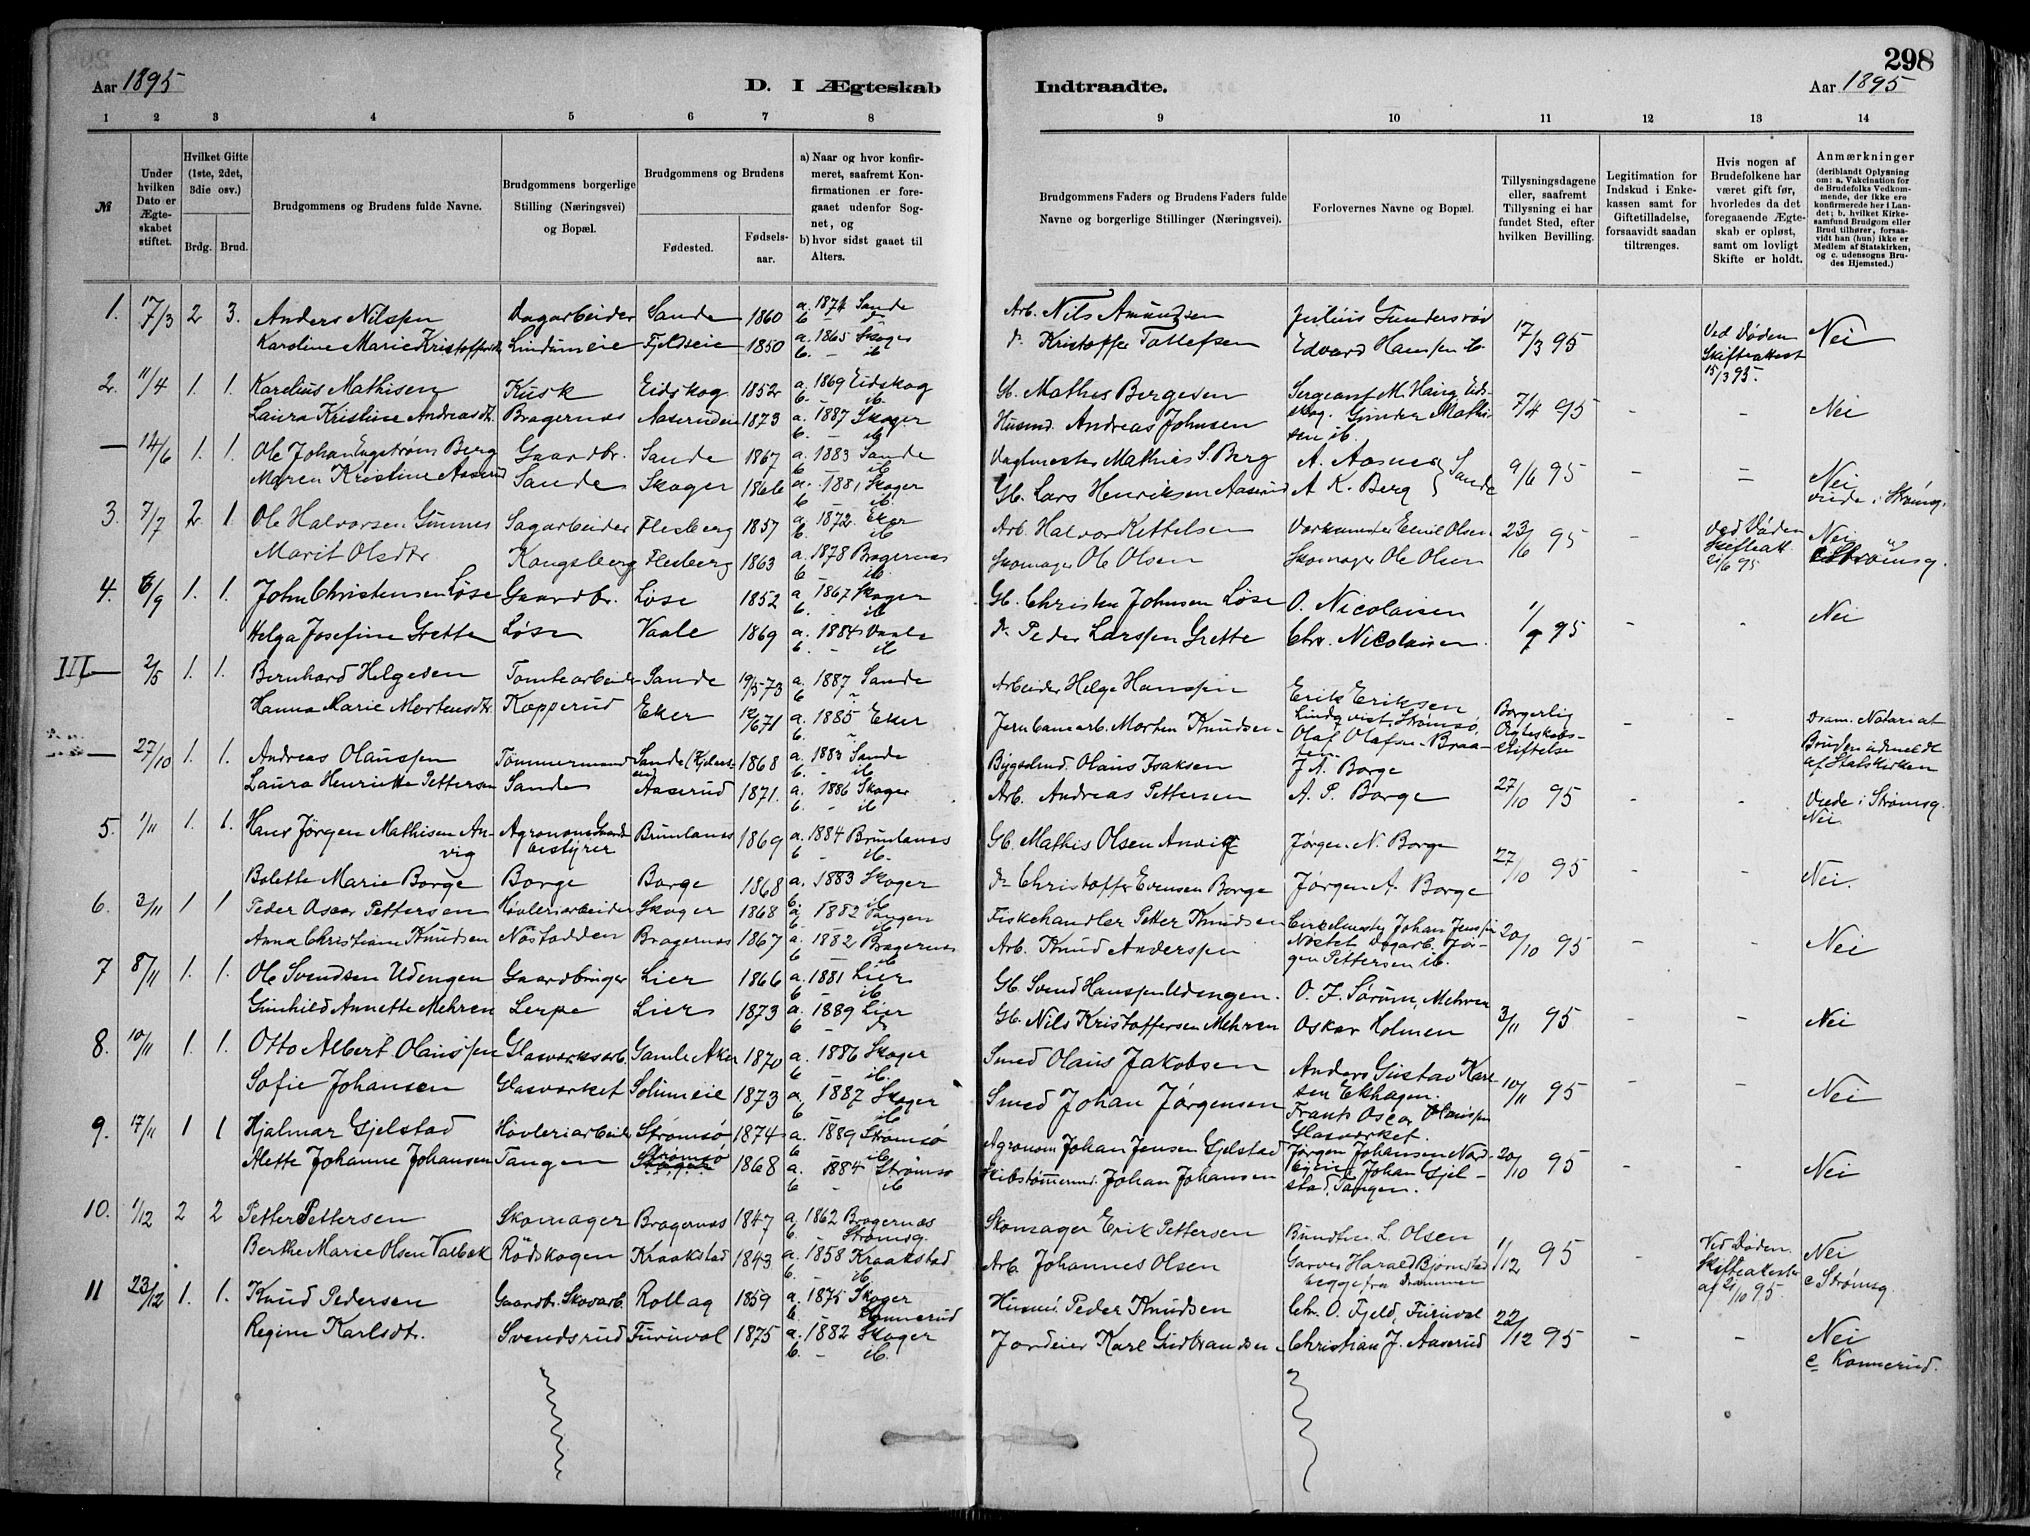 298
Aar 1895
D. I Ægteskab
Indtraadte.
Aar 1895
1 2 3 4 5 6 7 8
9 10 11 12 13 14
№
Under hvilken Dato er Ægteskabet stiftet.
Hvilket Gifte (1ste, 2det, 3die osv.)
Brdg. Brud.
Brudgommens og Brudens fulde Navne.
Brudgommens borgerlige Stilling (Næringsvei) og Bopæl.
Brudgommens og Brudens
Fødested.
Fødselsaar.
a) Naar og hvor konfirmeret, saafremt Konfirmationen er foregaaet udenfor Sognet, og
b) hvor sidst gaaet til Alters.
Brudgommens Faders og Brudens Faders fulde Navne og borgerlige Stillinger (Næringsvei).
Forlovernes Navne og Bopæl.
Tillysningsdagene eller, saafremt Tillysning ei har fundet Sted, efter hvilken Bevilling.
Legitimation for Indskud i Enkekassen samt for Giftetilladelse, forsaavidt saadan tiltrænges.
Hvis nogen af Brudefolkene har været gift før, hvorledes da det foregaaende Ægteskab er opløst, samt om lovligt Skifte er holdt.
Anmærkninger (deriblandt Oplysning om: a. Vakcination for de Brudefolks Vedkommende, der ikke ere konfirmerede her i Landet; b. hvilket Kirkesamfund Brudgom eller Brud tilhører, forsaavidt han (hun) ikke er Medlem af Statskirken, og c. udensogns Brudes Hjemsted.)
1. 17/3 2 3. Anders Nilssen Dagarbeider Sande 1860 a. 1874 Sande Arb. Nils Amundsen Julius Gundersrød 17/3 95 Ved Døden Skifteattest 15/3 95. Nei
Karoline Marie Kristoffersdtr. Lindumeie Fjeldeie 1850 a. 1865 Skoger b. - ib. Kristoffer Tollefsen Edvard Hansen ib.
2. 11/4 1. 1. Karelius Mathisen Kusk Eidskog 1852 a. 1869 Eidskog b. ib. Gb. Mathis Bergesen Sergeant M. Haug Eidskog. Gunder Mathisen ib. 7/4 95 - - Nei
Laura Kristine Andreasdtr. Bragernæs Aaserudeie 1873 a. 1887 Skoger b. - ib. Husmd. Andreas Johnsen
— 14/6 1. 1. Ole Johan Engstrøm Berg Gaardbr. Sande 1867 a. 1883 Sande b. ib. Vagtmester Mathias S. Berg A. Aasnes Sande 9/6 95 - = Nei viede i Strømsg.
Maren Kristine Aaserud Sande Skoger 1866 a. 1881 Skoger b. ib. Gb. Lars Henriksen Aaserud A. K. Berg
3. 7/7 2 1. Ole Halvorsen Gunnes Sagarbeider Flesberg 1857 a. 1872. Eker b. ib. Arb. Halvor Kittelsen Emil Olsen 23/6 95 Ved Døden Skifteatt. Nei
Marit Olsdtr. Kongsberg Flesberg 1863 a. 1878 Bragernæs b. ib. Skomager Ole Olsen Skomager Ole Olsen c Strømsg.
4. 6/9 1. 1. John Christensen Løse Gaardbr. Løse 1852 a. 1867 Skoger b. - ib. Gb. Christen Johnsen Løse O. Nicolaisen 1/9 95 - - Nei
Helga Josefine Grette Løse Vaale 1869 a. 1884 Vaale b. - ib Peder Larssen Grette Chr. Nicolaisen.
III — 2/5 1. 1. Bernhard Helgesen Tomtearbeider Sande 19/5 73 a. 1887 Sande Arbeider Helge Hanssen Erik Eriksen Lindqvist, Strømsø. Borgerlig Ægteskabsstiftelse - - Dram. Notariat Bruden udmeldt af Statskirken
Hanna Marie Mortensdtr. Kopperud Eker 12/6 71 a. 1885 Eker Jernbanearb. Morten Knudsen Olaf Olafsen Braaten
— 27/10 1. 1. Andreas Olaussen Tømmermand Sande 1868 a. 1883 Sande b. - ib. Bygselmd. Olaus Isaksen J. N. Borge 27/10 95 - - Viede i Strømsg. Nei.
Laura Henriette Pettersen Sande Aaserud 1871. a. 1886 Skoger b. - ib Arb. Andreas Pettersen A. P. Borge
5. 1/11 1. 1. Hans Jørgen Mathisen Anvig Agronom Gaardsbestyrer Brunlanes 1869 a. 1884 Brunlanes b. - ib. Gb. Mathis Olsen Anvig Jørgen N. Borge 27/10 95 - - Nei.
Bolette Marie Borge Borge Borge 1868 a. 1883 Skoger b. ib. Christoffer Evensen Borge Jørgen A. Borge
6. 3/11 1 1 Peder Oscar Pettersen Høvleriarbeider Skoger 1868 a. 1882 Tangen b. - ib. Fiskehandler Petter Knudsen Johan Jenssen Nøstet Dagarb. Jørgen Pettersen ib. 20/10 95 - - Nei
Anna Christiane Knudsen Nøstodden Bragernæs 1867 a. 1882 Bragernæs b. ib. Arb. Knud Anderssen
7 8/11 1. 1. Ole Svendsen Udengen Gaardbruger Lier 1866 a. 1881 Lier b. - ib. Gb. Svend Hanssen Udengen. O. J. Sørum, Mehren 3/11 95 - - Nei
Gunhild Annette Mehren Lerpe Lier 1873 a. 1889 Lier b. - Gb. Nils Kristoffersen Mehren Oskar Holmen
8. 10/11 1. 1. Otto Albert Olaussen Glasværksarb. Gamle Aker 1870 a. 1886 Skoger b. ib. Smed Olaus Jakobsen Anders Gustav Karlsen Ekhagen. 10/11 95 - - Nei
Sofie Johansen Glasværket Solumeie 1873 a. 1887 Skoger b. ib Smed Johan Jørgensen Frants Oscar Olaussen Glasværket.
9. 17/11 1 1 Hjalmar Gjelstad Høvleriarbeider Strømsø 1874 a. 1889 Strømsø b. ib. Agronom Johan Jensen Gjelstad Jørgen Johansen 20/10 95 - - Nei
Alette Johanne Johansen Tangen Strømsø Skoger 1868 a. 1884 Strømsø b. - ib Skibstømmermd. Johan Johansen Johan Gjelstad, Tangen.
10. 1/12 2 2 Petter Pettersen Skomager Bragernæs 1847 a. 1862 Bragernæs b. Strømsg. Skomager Erik Pettersen Bundtm. L. Olsen 1/12 95 - Ved Døden. Skifteattester af 21/10 95. Nei c Strømsg.
Berthe Marie Olsen Valbæk Rødskogen Kraakstad 1843 a. 1858 Kraakstad b. - ib. Arb. Johannes Olsen Garver Harald Bjørnstad begge fra Drammen
11 23/12 1. 1. Knud Pedersen Gaardbr. Skovarb. Rollag 1859 a. 1875 Skoger b. Konnerud Husmd. Peder Knudsen Chr. O. Fjeld, Furuvol 22/12 95 - - Nei c Konnerud.
Regine Karlsdtr. Svendsrud Furuvol 1875 a. 1882 Skoger b. - ib. Jordeier Karl Gudbrandsen Christian J. Aaserud